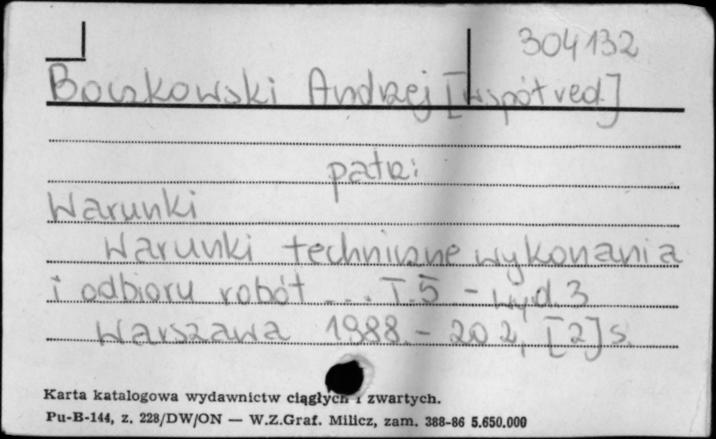 304132
Boczkowski Andrzej [współred.]
patrz:
Warunki
Warunki techniczne wykonania
i odbioru robót ... T. 5 - wyd. 3
Warszawa 1988. - 202, [2] s.
Karta katalogowa wydawnictw ciągłych i zwartych.
Pu-B-144, z. 228/DW/ON — W.Z.Graf. Milicz, zam. 388-86 5.650.000